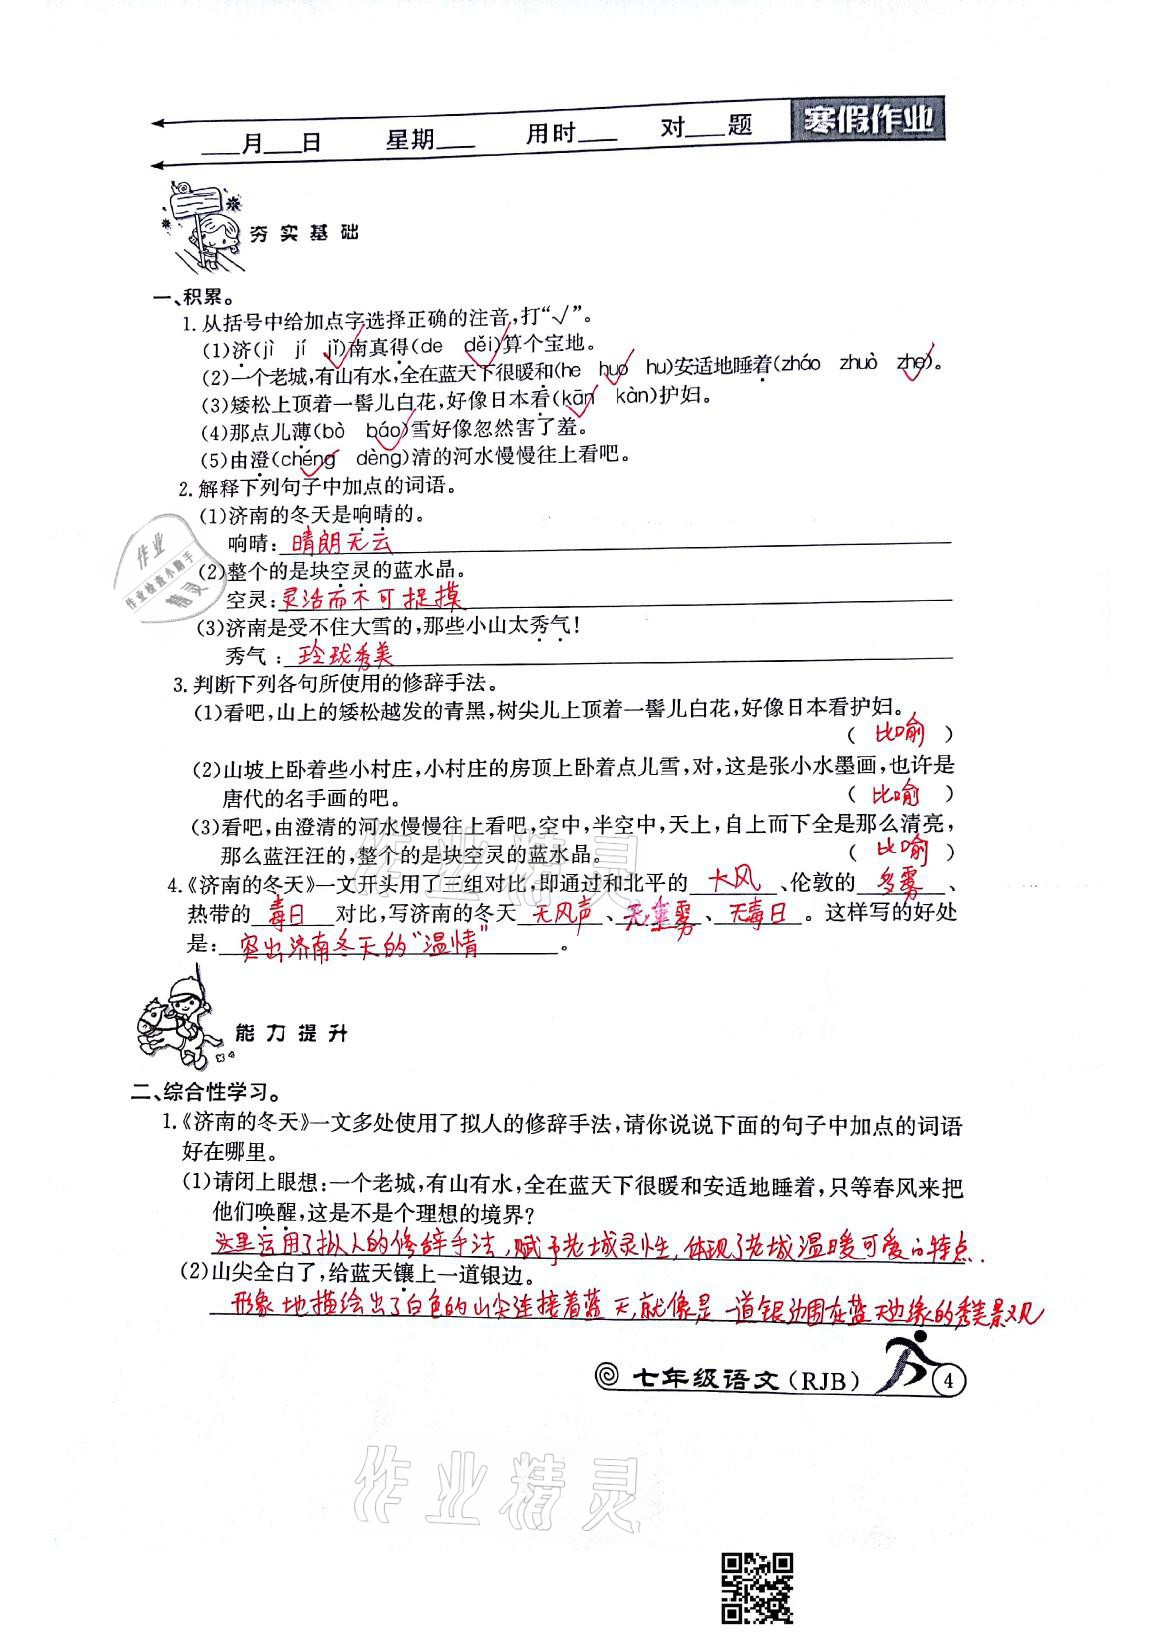 ___月___日 星期___ 用时___ 对___题 寒假作业
夯实基础
一、积累。
1. 从括号中给加点字选择正确的注音,打“√”。
(1)济(jì jí jǐ)南真得(de děi)算个宝地。
(2)一个老城,有山有水,全在蓝天下很暖和(he huo hu)安适地睡着(zháo zhuò zhe)。
(3)矮松上顶着一髻儿白花,好像日本看(kān kàn)护妇。
(4)那点儿薄(bò báo)雪好像忽然害了羞。
(5)由澄(chéng dèng)清的河水慢慢往上看吧。
2. 解释下列句子中加点的词语。
(1)济南的冬天是响晴的。
响晴: 晴朗无云
(2)整个的是块空灵的蓝水晶。
空灵: 灵活而不可捉摸
(3)济南是受不住大雪的,那些小山太秀气!
秀气: 玲珑秀美
3. 判断下列各句所使用的修辞手法。
(1)看吧,山上的矮松越发的青黑,树尖儿上顶着一髻儿白花,好像日本看护妇。
( 比喻 )
(2)山坡上卧着些小村庄,小村庄的房顶上卧着点儿雪,对,这是张小水墨画,也许是
唐代的名手画的吧。 ( 比喻 )
(3)看吧,由澄清的河水慢慢往上看吧,空中,半空中,天上,自上而下全是那么清亮,
那么蓝汪汪的,整个的是块空灵的蓝水晶。 ( 比喻 )
4.《济南的冬天》一文开头用了三组对比,即通过和北平的 大风 、伦敦的 多雾 、
热带的 毒日 对比,写济南的冬天 无风声 、 无重雾 、 无毒日 。这样写的好处
是: 突出济南冬天的“温情” 。
能力提升
二、综合性学习。
1.《济南的冬天》一文多处使用了拟人的修辞手法,请你说说下面的句子中加点的词语
好在哪里。
(1)请闭上眼想:一个老城,有山有水,全在蓝天下很暖和安适地睡着,只等春风来把
他们唤醒,这是不是个理想的境界?
这里运用了拟人的修辞手法,赋予老城灵性,体现了老城温暖可爱的特点.
(2)山尖全白了,给蓝天镶上一道银边。
形象地描绘出了白色的山尖连接着蓝天,就像是一道银边围在蓝天边缘的秀美景观
七年级语文(RJB) 4
作业
作业检查小助手
精灵
作业精灵
作业精灵